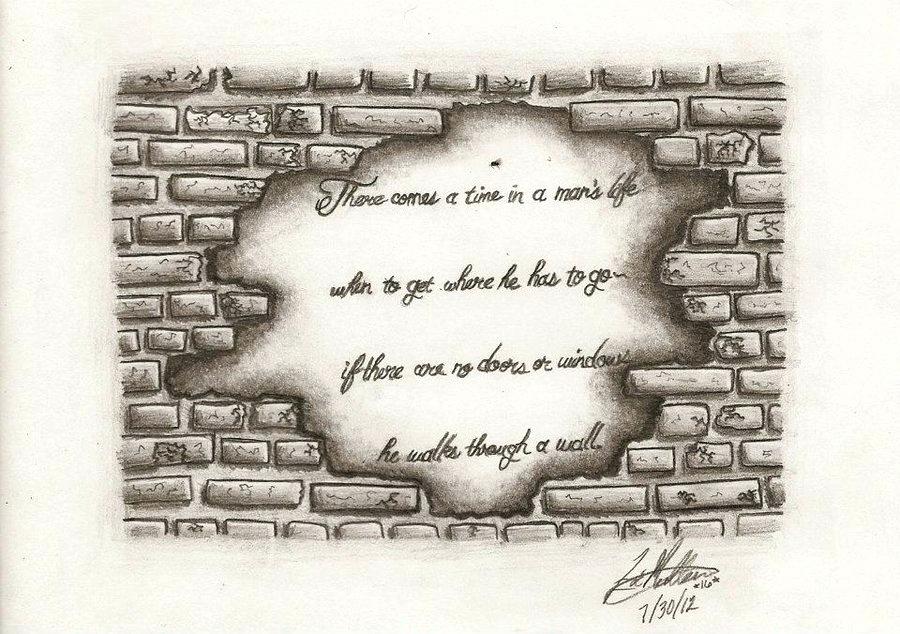 There comes a time in a man's life
when to get where he has to go~
if there are no doors or windows
he walks through a wall.
*16*
7/30/12